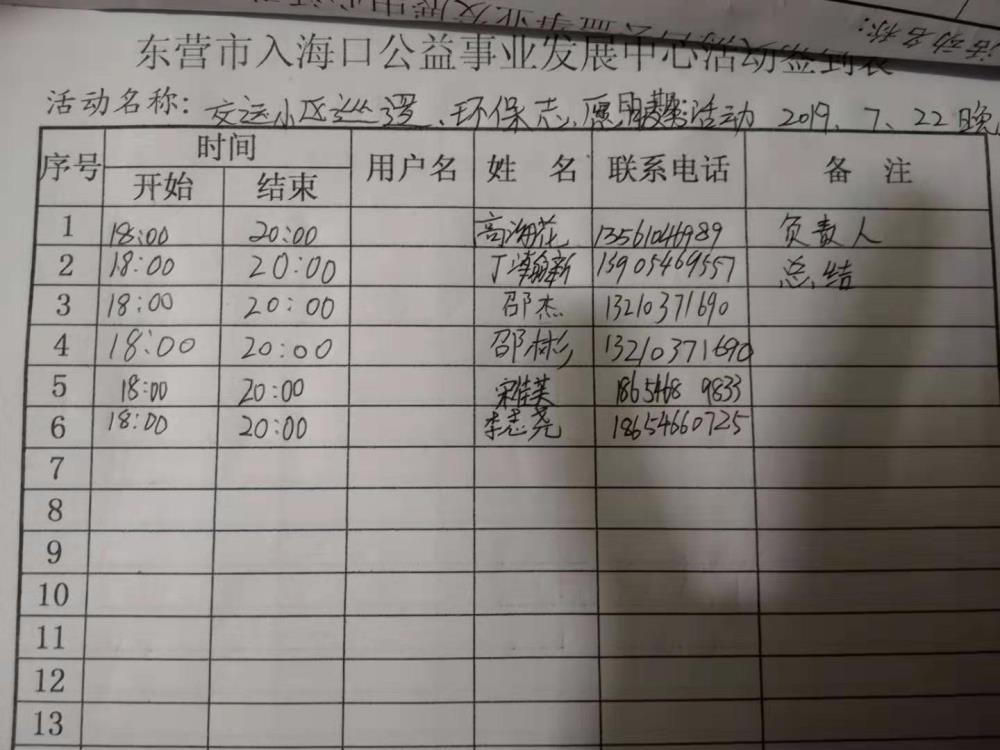 活动名称:
东营市入海口公益事业发展中心活动签到表
活动名称: 交运小区巡逻、环保志愿服务活动 2019、7、22晚
序号 时间 用户名 姓 名 联系电话 备 注
开始 结束
1 18:00 20:00 高海花 13561046989 负责人
2 18:00 20:00 丁瀚新 13905469557 总结
3 18:00 20:00 邵杰 13210371690
4 18:00 20:00 邵彬 13210371690
5 18:00 20:00 宋佳芙 1865468 9833
6 18:00 20:00 李志尧 18654660725
7
8
9
10
11
12
13